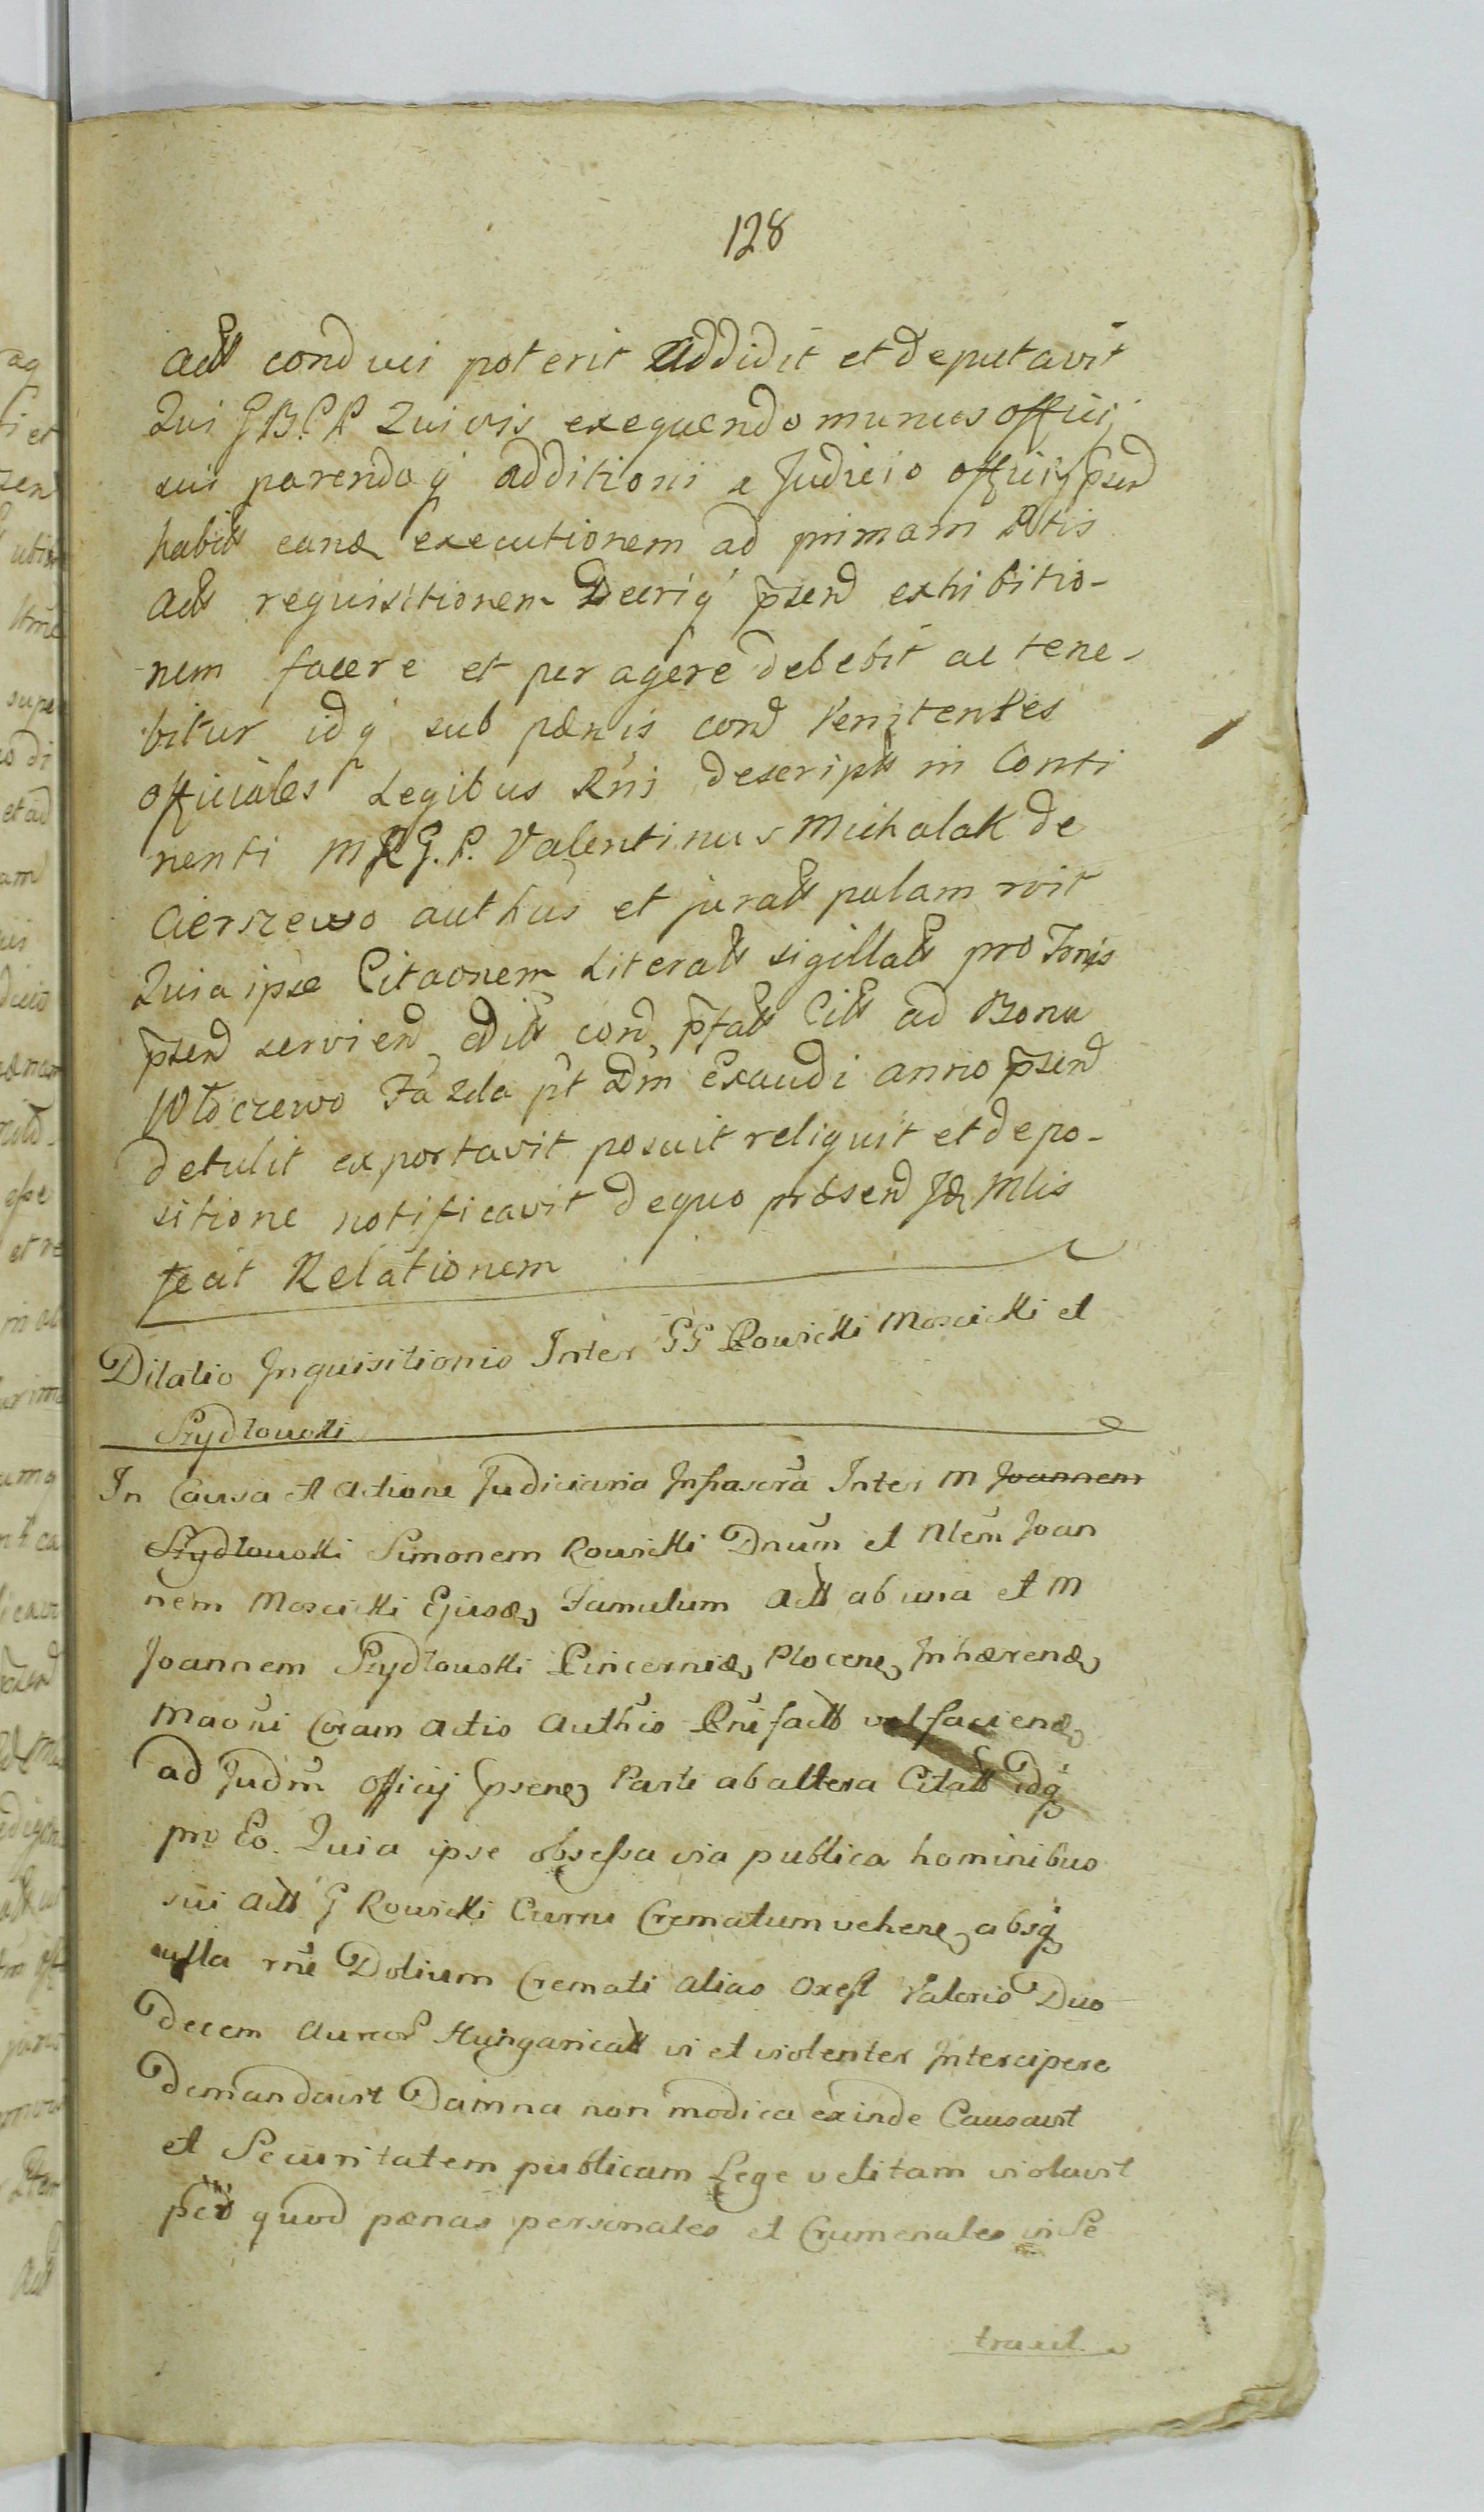 128
actt conduci poterit addidit et deputavit
Qui G B. C P Quivis exequendo munus officij
sui parendoq additioni e Judicio officij psend
habitt eand executionem ad primam Ptis
actt requisitionem Decriq psend exhibitio-
nem facere et peragere debebit ac tene-
bitur idq sub pænis cond Renitentes
officiales Legibus Rni descriptt in Conti
nenti M R G. P. Valentinus Michalak de
Cierszewo authus et juratt palam rvit
Quia ipse Citaonem Literatt sigillatt pro Tonis
psend serviend editt cond pfatt Citt ad Bona
Włoczewo Fa 2da pt Dm Exaudi anno psend
detulit exportavit posuit reliquit et depo-
sitione notificavit de quo præsend Jd Mlis
fecit Relationem
Dilatio Inquisitionis Inter GG Rowicki Moscicki et
Szydłowski
In Causa et Actione Judiciaria Infrascra Inter M Joannem
Szydłowski Simonem Rowicki Dnum et Nlem Joan
nem Moscicki Ejusd Famulum Actt ab una et M
Joannem Szydłowski Pincernid Plocen Inhærend
Maoni Coram Actis Authis Pni factt vel faciend
ad Judm Officij psend Parte ab altera Citatt idq
pro Eo. Quia ipse obsessa via publica hominibus
sui Actt G Rowicki Curru Crematum vehend absq
ulla rne Dolium Cremati alias Oxeft Valoris Duo
decem Aureor Hungaricatt vi et violenter Intercipere
demandavit Damna non modica exinde Causavit
et Securitatem publicam Lege vetitam violavit
per quod pænas personales et Crumenales in Se
traxit